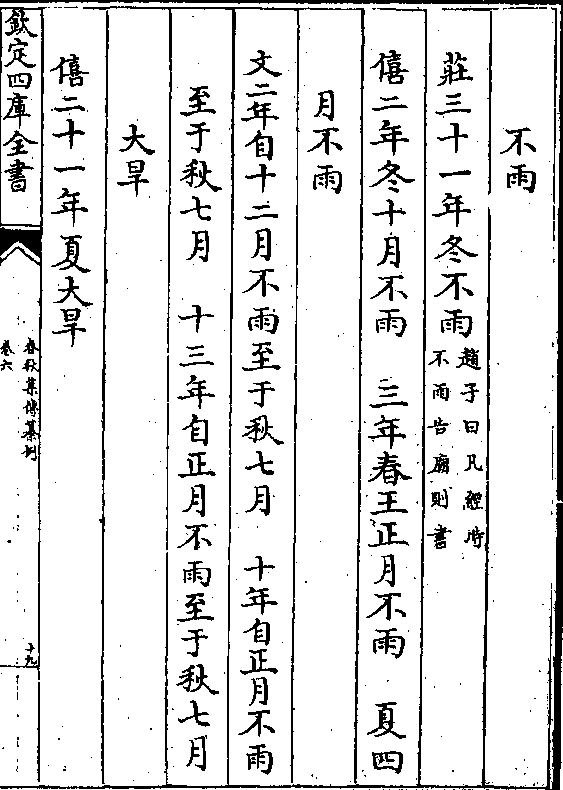 不雨
莊三十一年冬不雨
趙子曰凡經時
不雨告廟則書
僖二年冬十月不雨　三年春王正月不雨　夏四
月不雨
文二年自十二月不雨至于秋七月　十年自正月不雨
至于秋七月　十三年自正月不雨至于秋七月
大旱
僖二十一年夏大旱
欽定四庫全書
春秋集傳纂例
卷六
十九